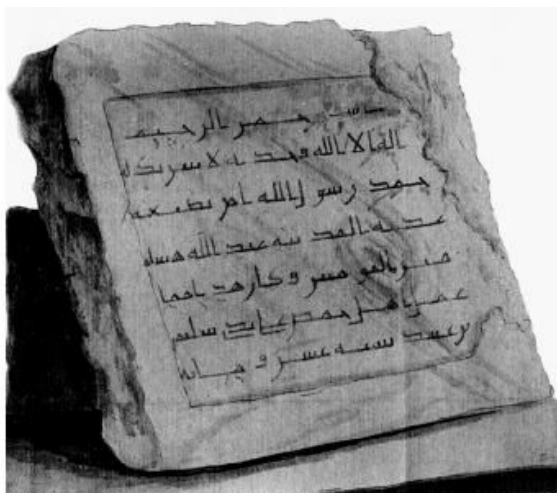 الرحمن الرحيم
اله الا الله وحده لا شريك له
محمد رسول الله امر بصنعة
هذه المدينة عبد الله هشام
امير المؤمنين وكان هذا مما
عمل اهل حمص على يدي سليمن
بن عبيد سنة عشر ومائة